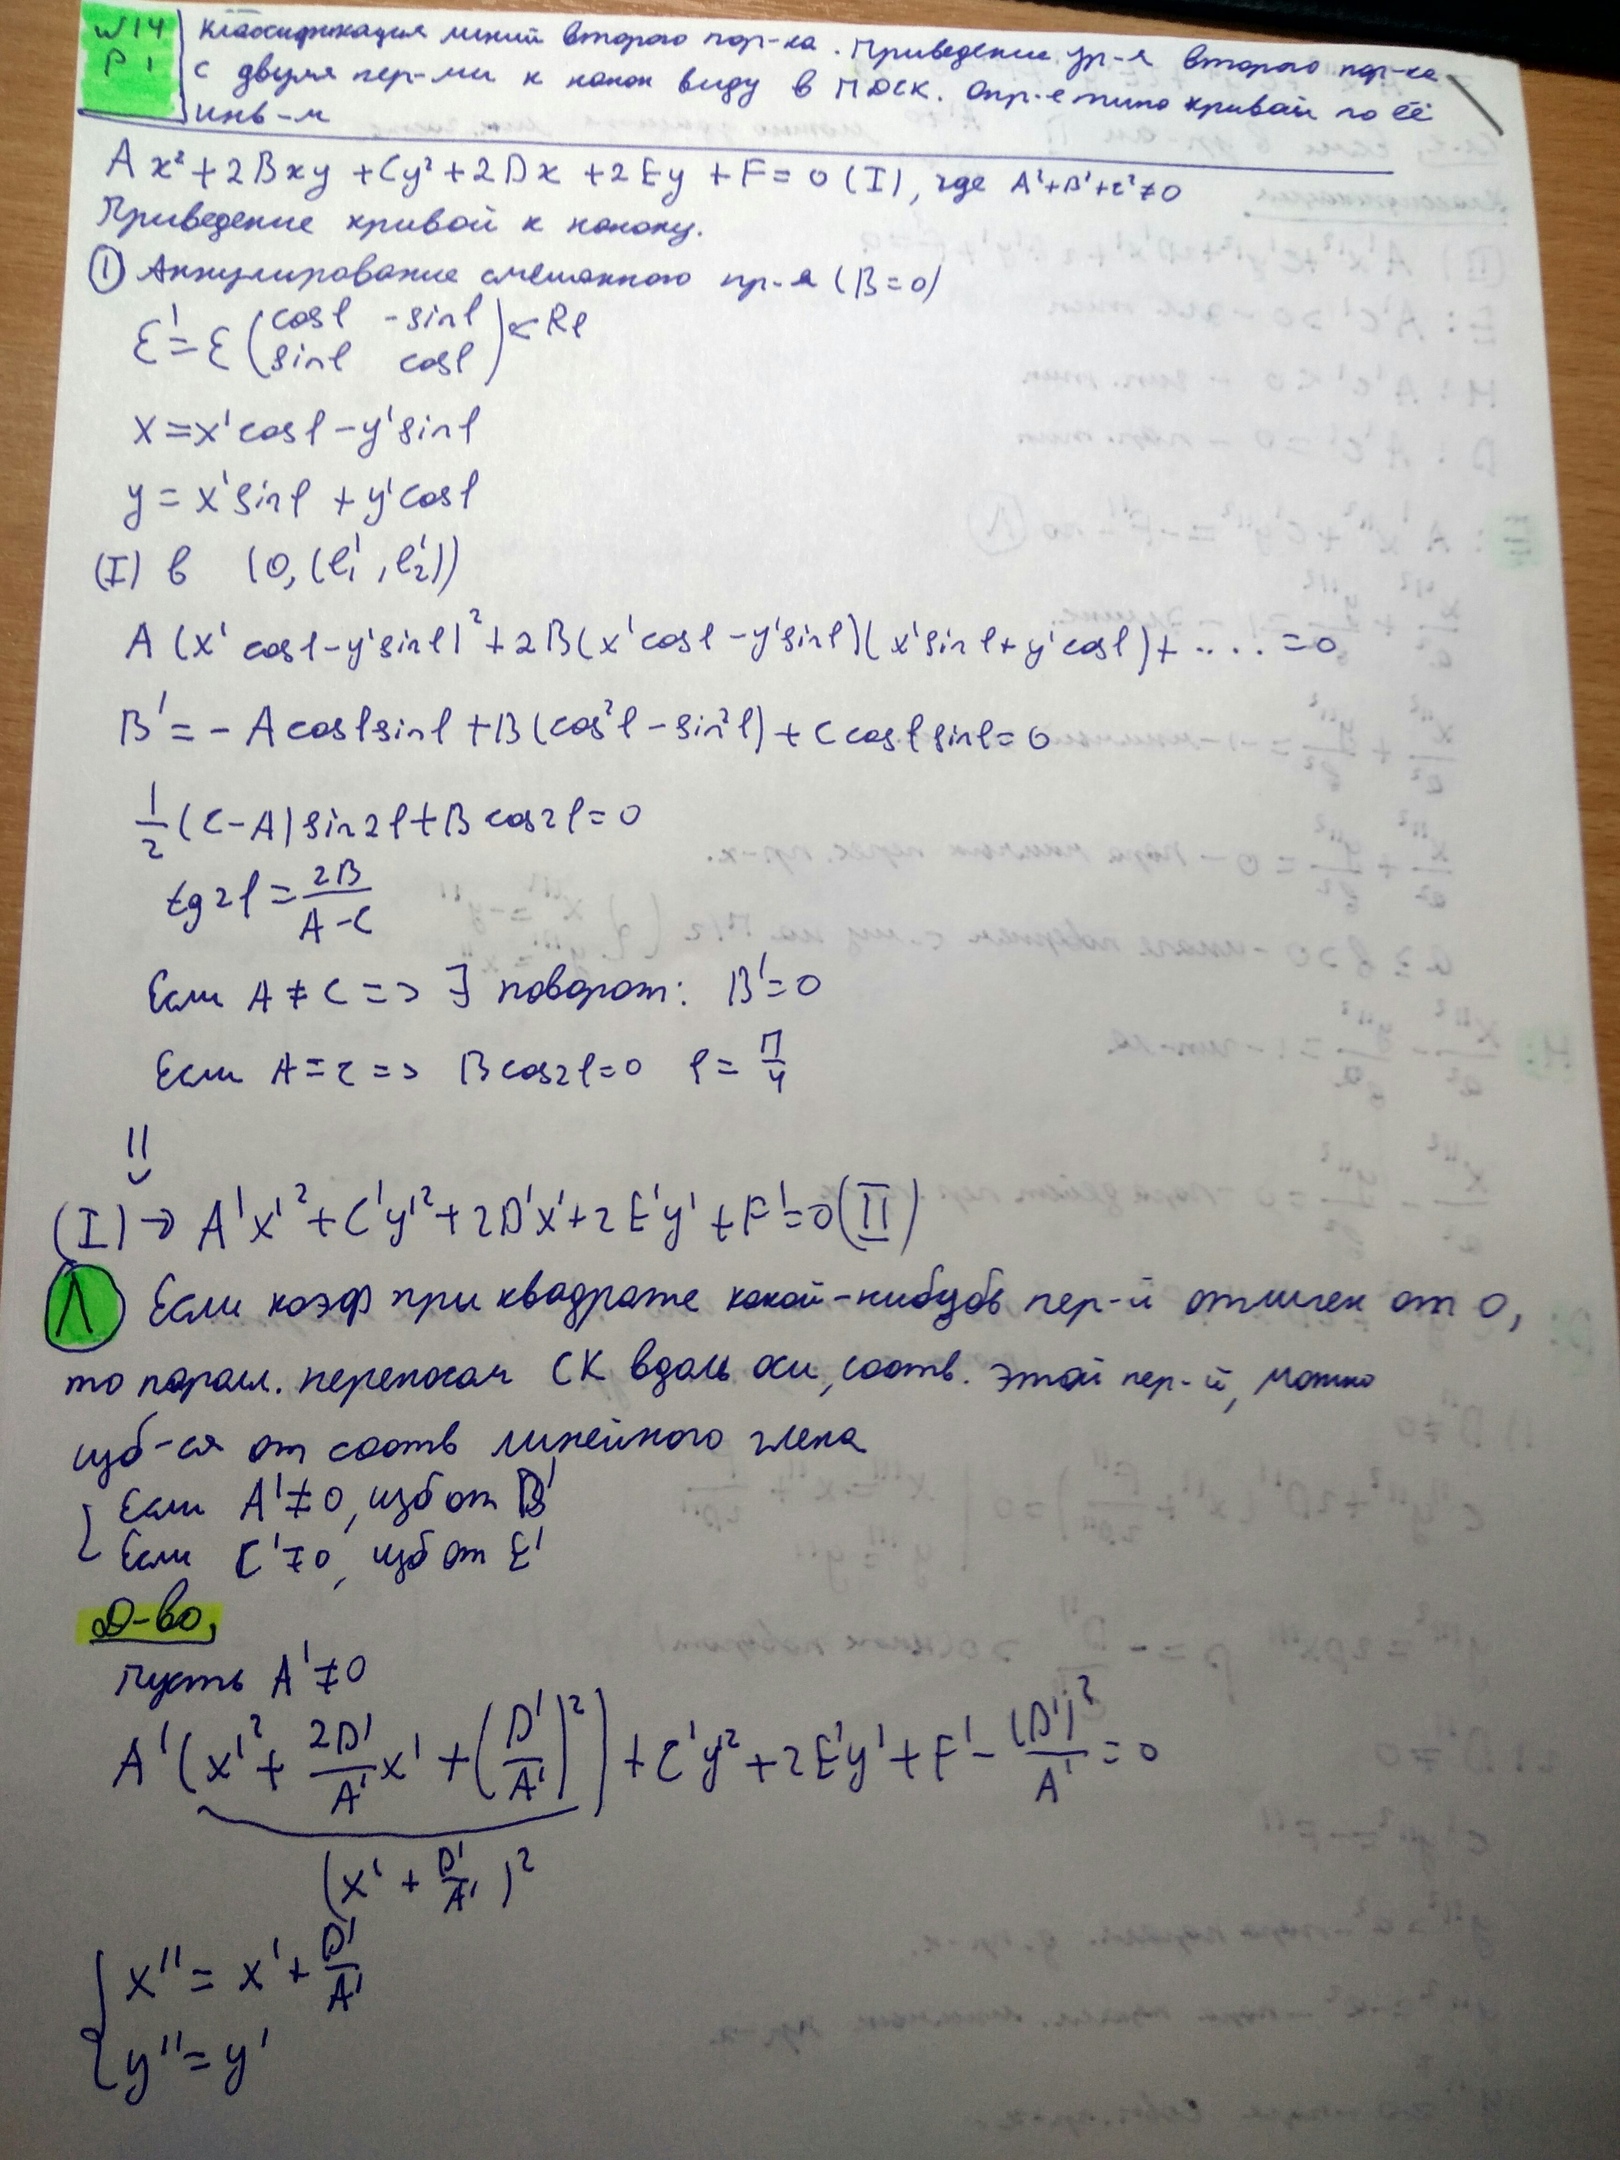 №14 Классификация линий второго пор-ка. Приведение ур-я второго пор-ка
Р1 с двумя пер-ми к канон виду в ПДСК. Опр-е типа кривой по её
инв-м
Ax² + 2Bxy + Cy² + 2Dx + 2Ey + F = 0 (I), где A²+B²+C² ≠ 0
Приведение кривой к канону.
① Аннулирование смешанного пр-я (B=0)
ε' = ε (cosφ -sinφ; sinφ cosφ) ← Rφ
x = x'cosφ - y'sinφ
y = x'sinφ + y'cosφ
(I) в (0, (e₁', e₂'))
A(x'cosφ - y'sinφ)² + 2B(x'cosφ - y'sinφ)(x'sinφ + y'cosφ) + .... = 0
B' = -A cosφ sinφ + B(cos²φ - sin²φ) + C cosφ sinφ = 0
1/2 (C-A) sin2φ + B cos2φ = 0
tg2φ = 2B/(A-C)
Если A ≠ C => ∃ поворот: B' = 0
Если A = C => B cos2φ = 0 φ = П/4
⇓
(I) → A'x'² + C'y'² + 2D'x' + 2E'y' + F' = 0 (II)
Л Если коэф при квадрате какой-нибудь пер-й отличен от 0,
то паралл. переносом СК вдоль оси, соотв. этой пер-й, можно
изб-ся от соотв линейного члена
Если A' ≠ 0, изб от D'
Если C' ≠ 0, изб от E'
D-во,
Пусть A' ≠ 0
A'(x'² + 2D'/A' x' + (D'/A')²) + C'y² + 2E'y' + F' - (D')²/A' = 0
(x' + D'/A')²
{ x'' = x' + D'/A'
{ y'' = y'